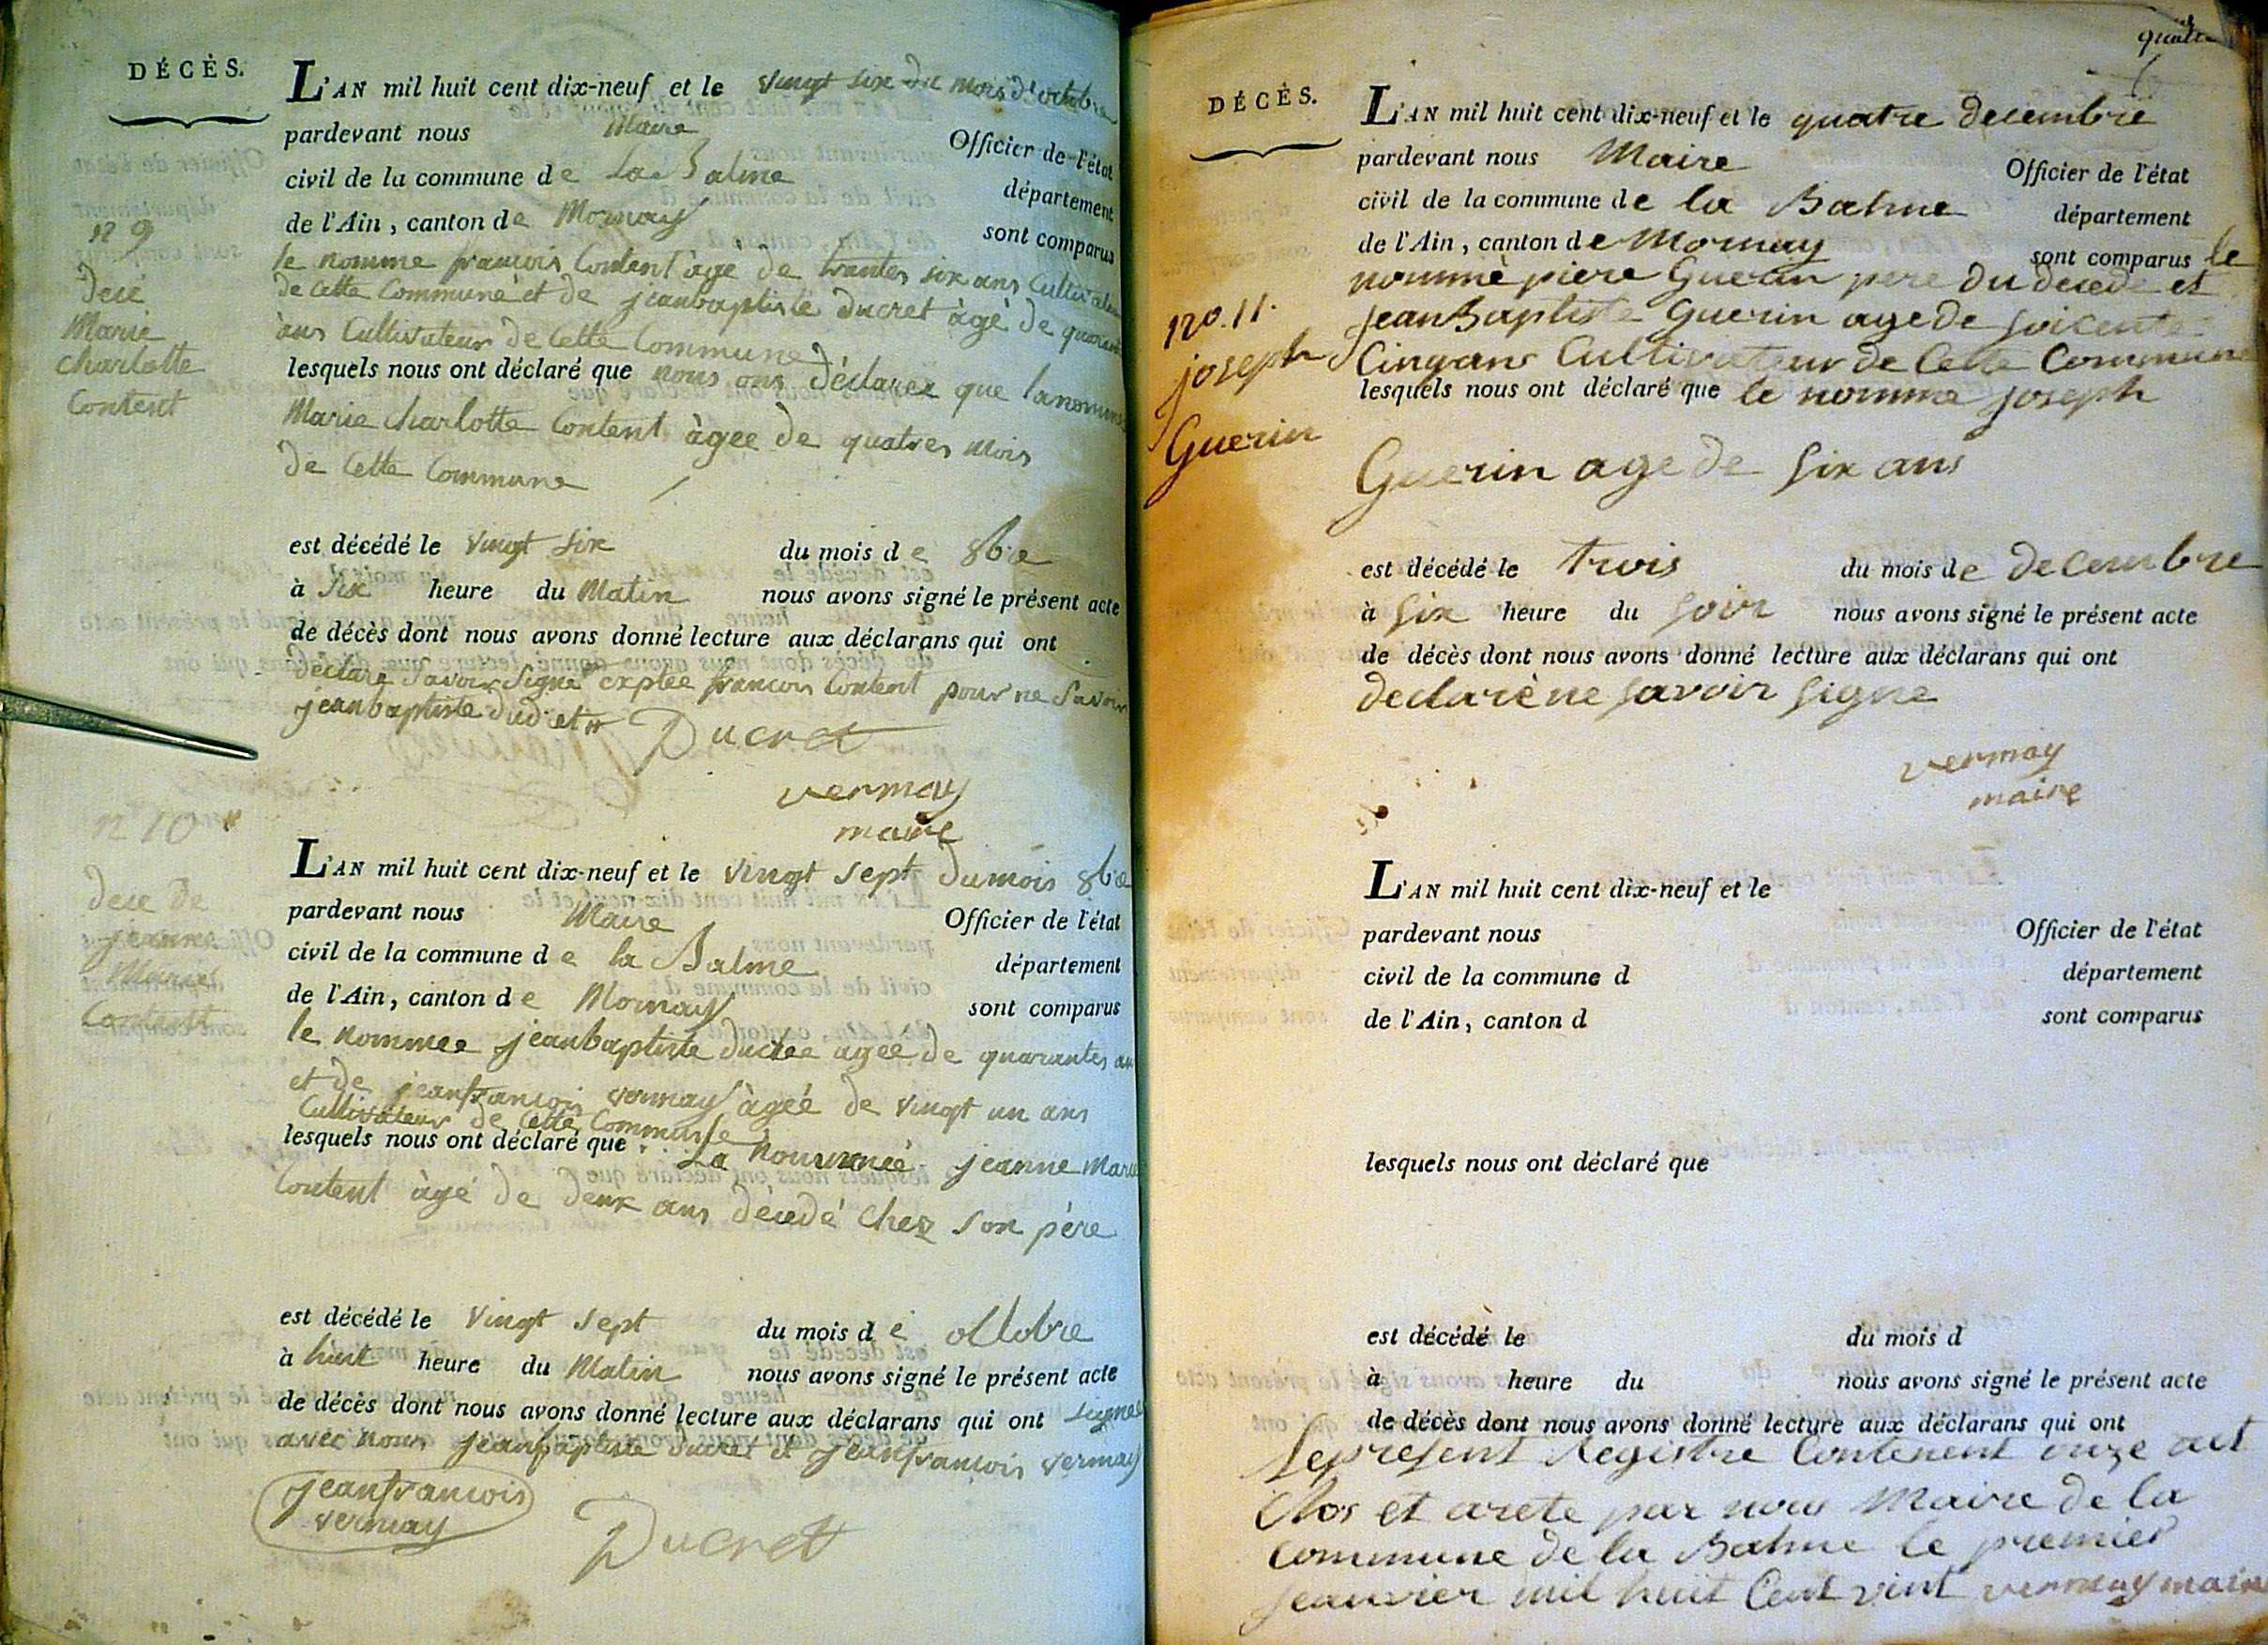 DÉCÈS.
L'AN mil huit cent dix-neuf et le vingt six du mois d'octobre
pardevant nous Maire Officier de l'état
civil de la commune de La Balme département
de l'Ain, canton de Mornay sont comparus
le nomme francois Content age de trantes six ans Cultivateur
de cette Commune et de jeanbaptiste Ducret àgé de quarant
ans Cultivateur de Cette Commune
n 9
Decé
Marie
Charlotte
Content
lesquels nous ont déclaré que nous ons déclarer que la nomme
Marie Charlotte Content àgee de quatres mois
de Cette Commune
est décédé le vingt six du mois de 8bre
à six heure du Matin nous avons signé le présent acte
de décès dont nous avons donné lecture aux déclarans qui ont
declare savoir signé francois Content pour ne savoir
jeanbaptiste Ducret
Ducret
vermay
maire
n 10
Dece de
jeanne
Marie
Content
L'AN mil huit cent dix-neuf et le vingt sept du mois 8bre
pardevant nous Maire Officier de l'état
civil de la commune de la Balme département
de l'Ain, canton de Mornay sont comparus
le nommee jeanbaptiste ducree agee de quarantes an
et de jeanfrancois vermay àgéé de vingt un ans
Cultivateur de Cette Commune
lesquels nous ont déclaré que La Nommeé jeanne Marie
Content àgé de deux ans décedé chez son père
est décédé le vingt sept du mois de octobre
à huit heure du Matin nous avons signé le présent acte
de décès dont nous avons donné lecture aux déclarans qui ont signee
avec nous jeanbaptiste Ducret et jeanfrancois vermay
jeanfrancois
vermay
Ducret
quatre
DÉCÈS.
L'AN mil huit cent dix-neuf et le quatre decembre
pardevant nous Maire Officier de l'état
civil de la commune de la Balme département
de l'Ain, canton de Mornay sont comparus le
nommé piere Guerin pere du decede et
Jean Baptiste Guerin age de soicente
Cinqans Cultivateur de Cette Commune
no. 11.
joseph
Guerin
lesquels nous ont déclaré que le nomme joseph
Guerin age de six ans
est décédé le trois du mois de decembre
à six heure du soir nous avons signé le présent acte
de décès dont nous avons donné lecture aux déclarans qui ont
declaré ne savoir signe
vermay
maire
L'AN mil huit cent dix-neuf et le
pardevant nous Officier de l'état
civil de la commune d département
de l'Ain, canton d sont comparus
lesquels nous ont déclaré que
est décédé le du mois d
à heure du nous avons signé le présent acte
de décès dont nous avons donné lecture aux déclarans qui ont
Le present Registre Contenent onze act
Clos et arete par nous Maire de la
Commune de la Balme le premier
jeanvier mil huit Cent vint vermay maire